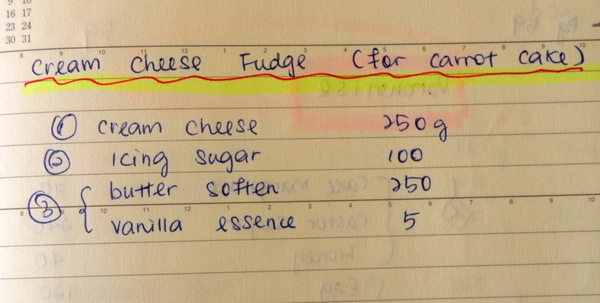 16 17
23 24
30 31
Cream Cheese Fudge (for carrot cake)
① cream cheese 250g
② Icing sugar 100
③ { butter soften 250
vanilla essence 5